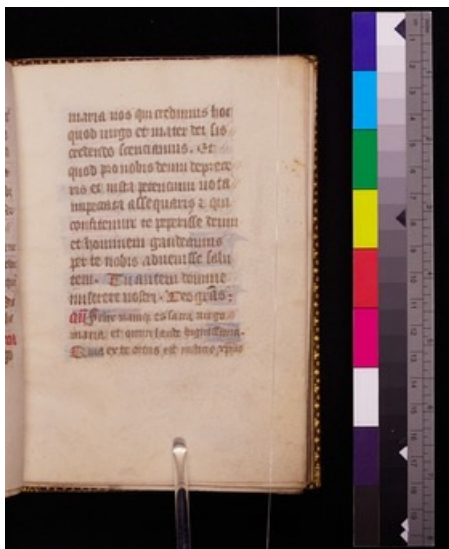 maria nos qui credimus hoc
quod virgo et mater dei sis
credendo senciamus. Et
quod pro nobis deum deprece
ris et iusta petencium vota
impetrata assequaris ⁊ qui
confitemur te peperisse deum
et hominem gaudeamus
per te nobis advenisse salu
tem. Tu autem domine
miserere nostri. Deo grãs.
Felix namq; es sacra virgo
maria et omni laude dignissima.
Quia ex te ortus est